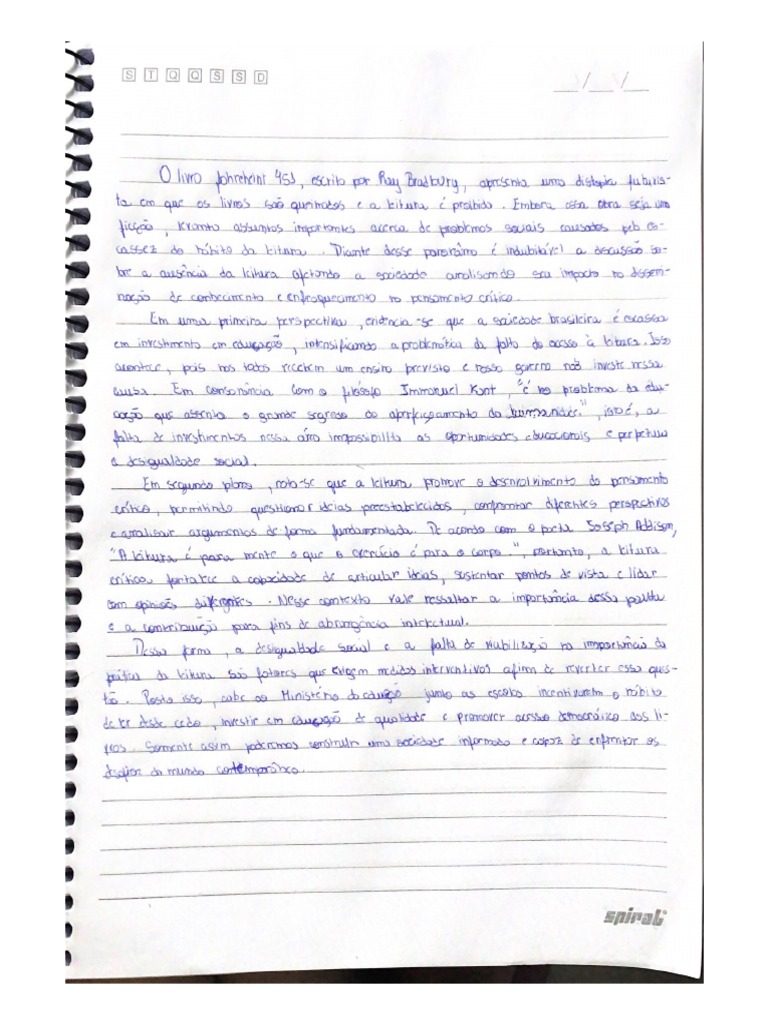 S T Q Q S S D
__/__/__
O livro fahreheint 451, escrito por Ray Bradbury, apresenta uma distopia futuris-
ta em que os livros são queimados e a leitura é proibida. Embora essa obra seja um
ficção, levanta assuntos importantes acerca de problemas sociais causados pela es-
cassez do hábito da leitura. Diante desse panorâma é indubitável a discussão so-
bre a ausência da leitura afetando a sociedade analisando seu impacto na dissem-
nação de conhecimento e enfraquecimento no pensamento crítico.
Em uma primeira perspectiva, evidência-se que a sociedade brasileira é escassa
em investimento em educação, intensificando a problemática da falta do acesso à leitura. Isso
acontece, pois nos todos recebem um ensino previsto e nosso governo não investe nessa
causa. Em consonância com o filósofo Immanuel Kant, "é no problema da edu-
cação que assenta o grande segredo do aperfeiçoamento da humanidade.", isto é, a
falta de investimentos nessa aréa impossibilita as oportunidades educacionais e perpetua
a desigualdade social.
Em segundo plano, nota-se que a leitura promove o desenvolvimento do pensamento
crítico, permitindo questionar ideias preestabelecidas, confrontar diferentes perspectivas
e analisar argumentos de forma fundamentada. De acordo com o poeta Joseph Addison,
"A leitura é para mente o que o exercício é para o corpo.", portanto, a leitura
crítica fortalece a capacidade de articular ideias, sustentar pontos de vista e lidar
com opiniões diferentes. Nesse contexto vale ressaltar a importância dessa pauta
e a contribuição para fins de abrangência intelectual.
Dessa forma, a desigualdade social e a falta de viabilização na importância da
prática da leitura são fatores que exigem medidas interventivas afim de reverter essa ques-
tão. Posto isso, cabe ao Ministério da educação junto as escolas incentivarem o hábito
de ler desde cedo, investir em educação de qualidade e promover acesso democrático aos li-
vros. Somente assim poderemos construir uma sociedade informada e capaz de enfrentar os
desafios do mundo contemporâneo.
spiral